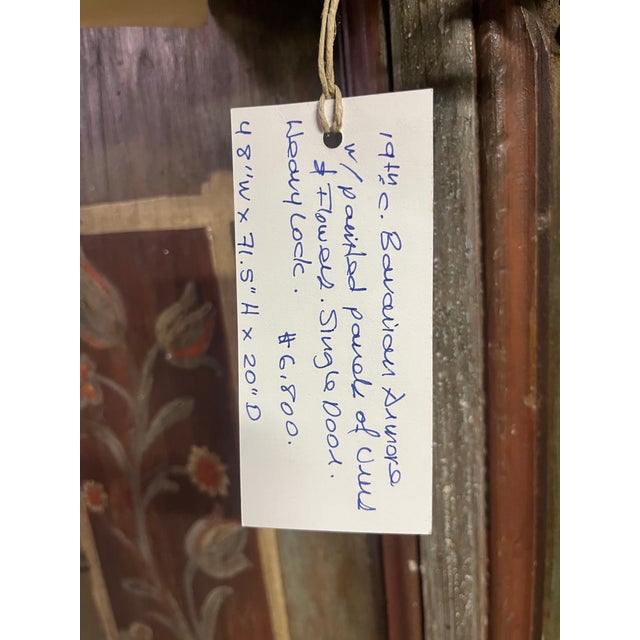 19th c. Bavarian Armore
w/ painted panels of Urns
& Flowers. Single Door.
Heavy Lock. $6,800.
48"W x 71.5"H x 20"D